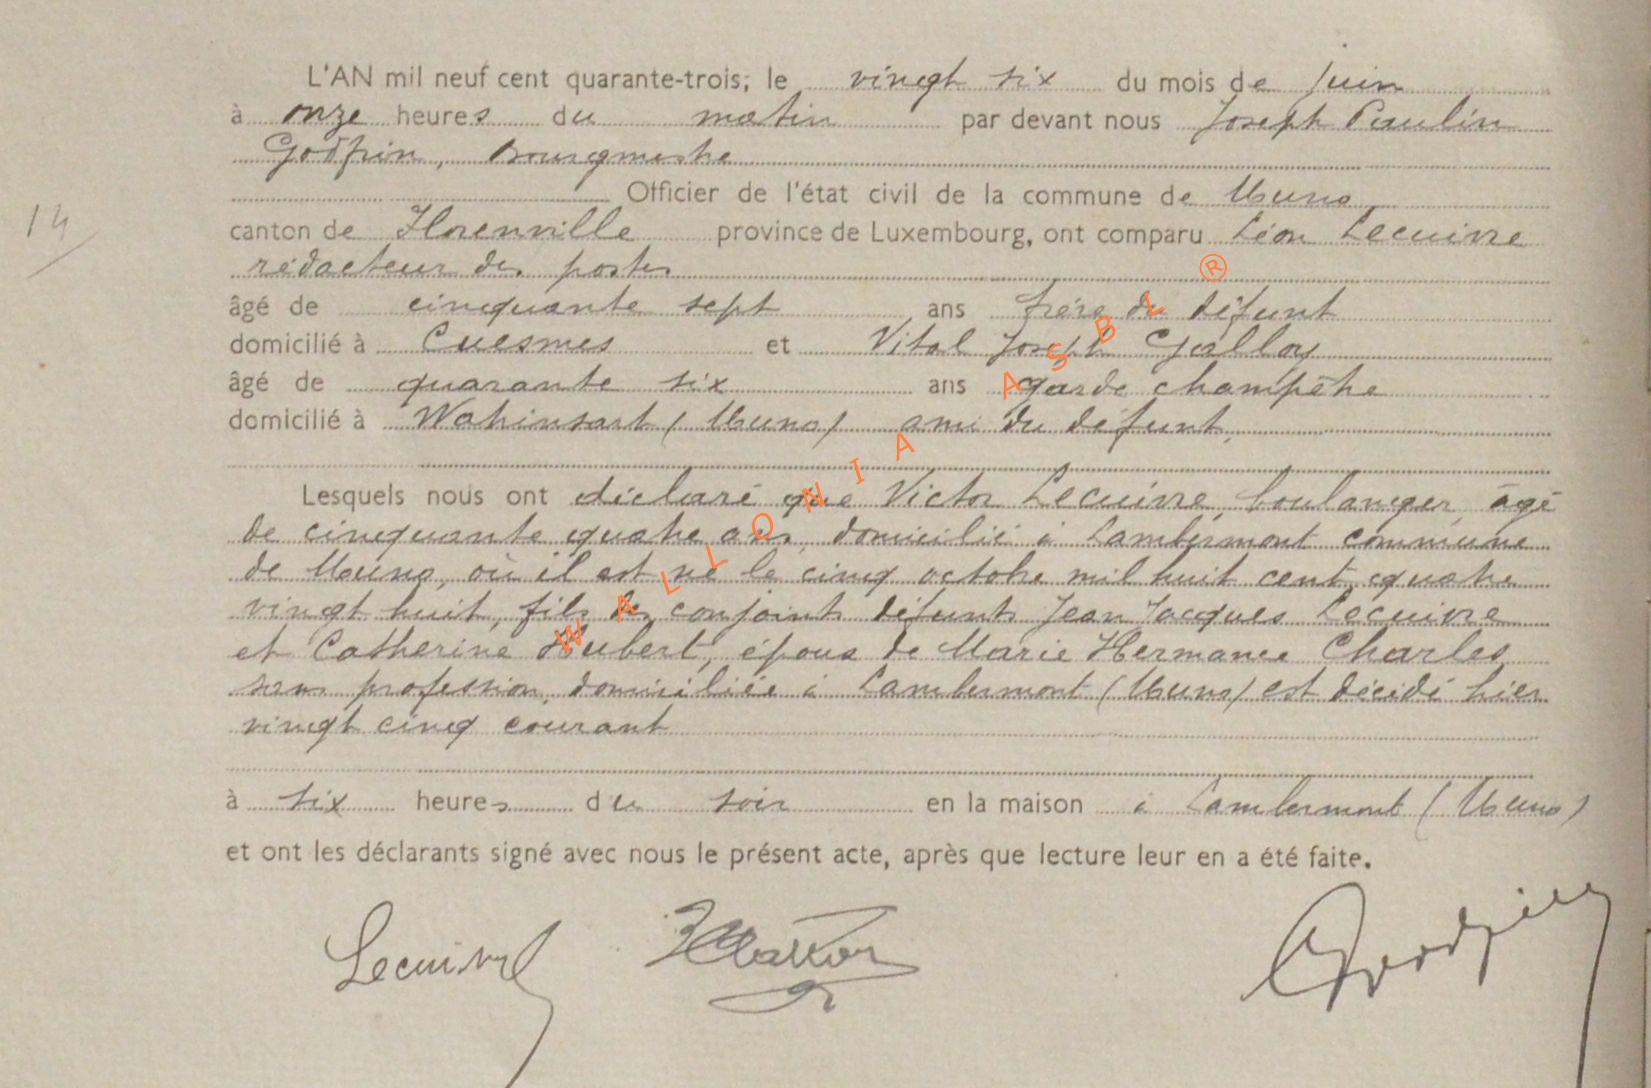 L'AN mil neuf cent quarante-trois, le vingt six du mois de juin
à onze heures du matin par devant nous Joseph Paulin
Godfrin, Bourgmestre
Officier de l'état civil de la commune de Muno
14
canton de Florenville province de Luxembourg, ont comparu Léon Lecuivre
rédacteur des postes
âgé de cinquante sept ans frère du défunt
domicilié à Cuesmes et Vital Joseph
âgé de quarante six ans garde champêtre
domicilié à Watrinsart (Muno) ami du défunt,
Lesquels nous ont déclaré que Victor Lecuivre, boulanger, âgé
de cinquante quatre ans, domicilié à Lambermont commune
de Muno, où il est né le cinq octobre mil huit cent quatre
vingt huit, fils des conjoints défunts Jean Jacques Lecuivre
et Catherine Hubert, époux de Marie Hermance Charles,
sans profession, domiciliée à Lambermont (Muno) est décédé hier
vingt cinq courant
à six heures du soir en la maison à Lambermont (Muno)
et ont les déclarants signé avec nous le présent acte, après que lecture leur en a été faite.
Lecuivre Godfrin
WALLONIA ASBL ®